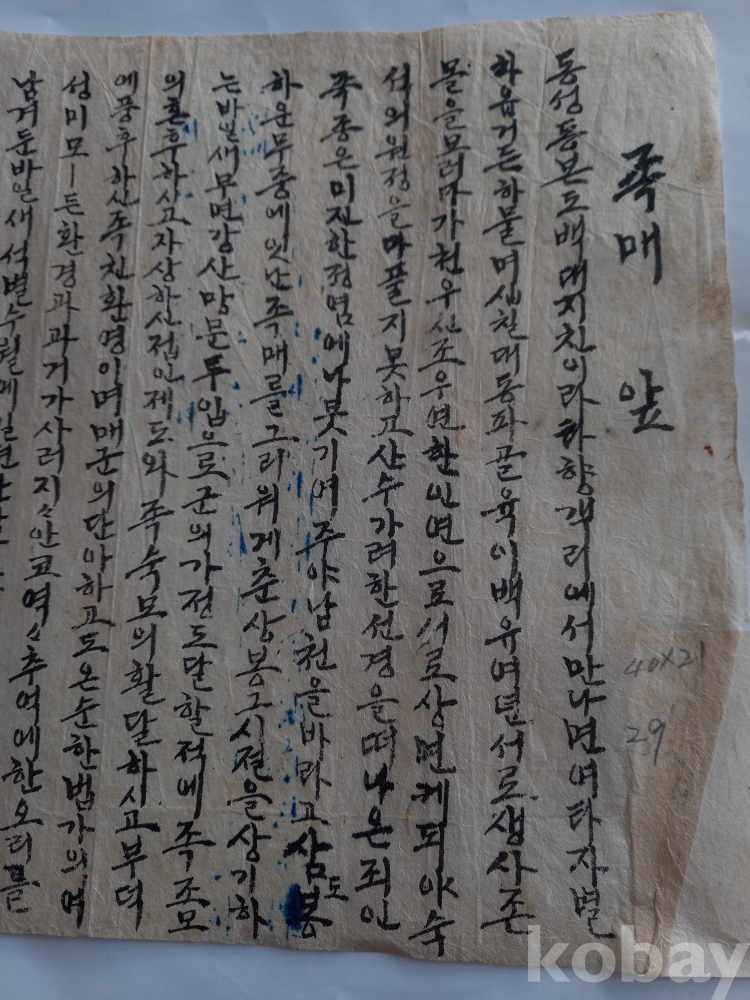 족매 앞
동성동본도 백대지친이라 타향객리에서 만나면 여타자별
하읍거든 하물며 십칠대동파골육이 백유여년 서로 생사존
몰을 모러다가 천우신조우연한 인연으로 서로 상면케 되야 숙
석의 원정을 다 풀지 못하고 산수가려한 선경을 떠나온 죄인
족종은 미진한 정염에 나붓기여 주야 남천을 바라고 삼도봉
하운무중에 잇난 족매를 그리워게 춘상봉 그 시절을 상기하
는바일새 무면강산 망문투입으로 군의 가전도달할적에 족조모
의 혼후하시고 자상하신 접인제도와 족숙모의 활달하시고 부덕
에 풍후하신 족친환영이며 매군의 단아하고도 온순한 법가의 여
성미 모ㅣ든 환경과 과거가 사러지〻 안코 역〻 추억에 한오리를
남겨둔바일새 석별수월에 일편
kobay
40x21
29